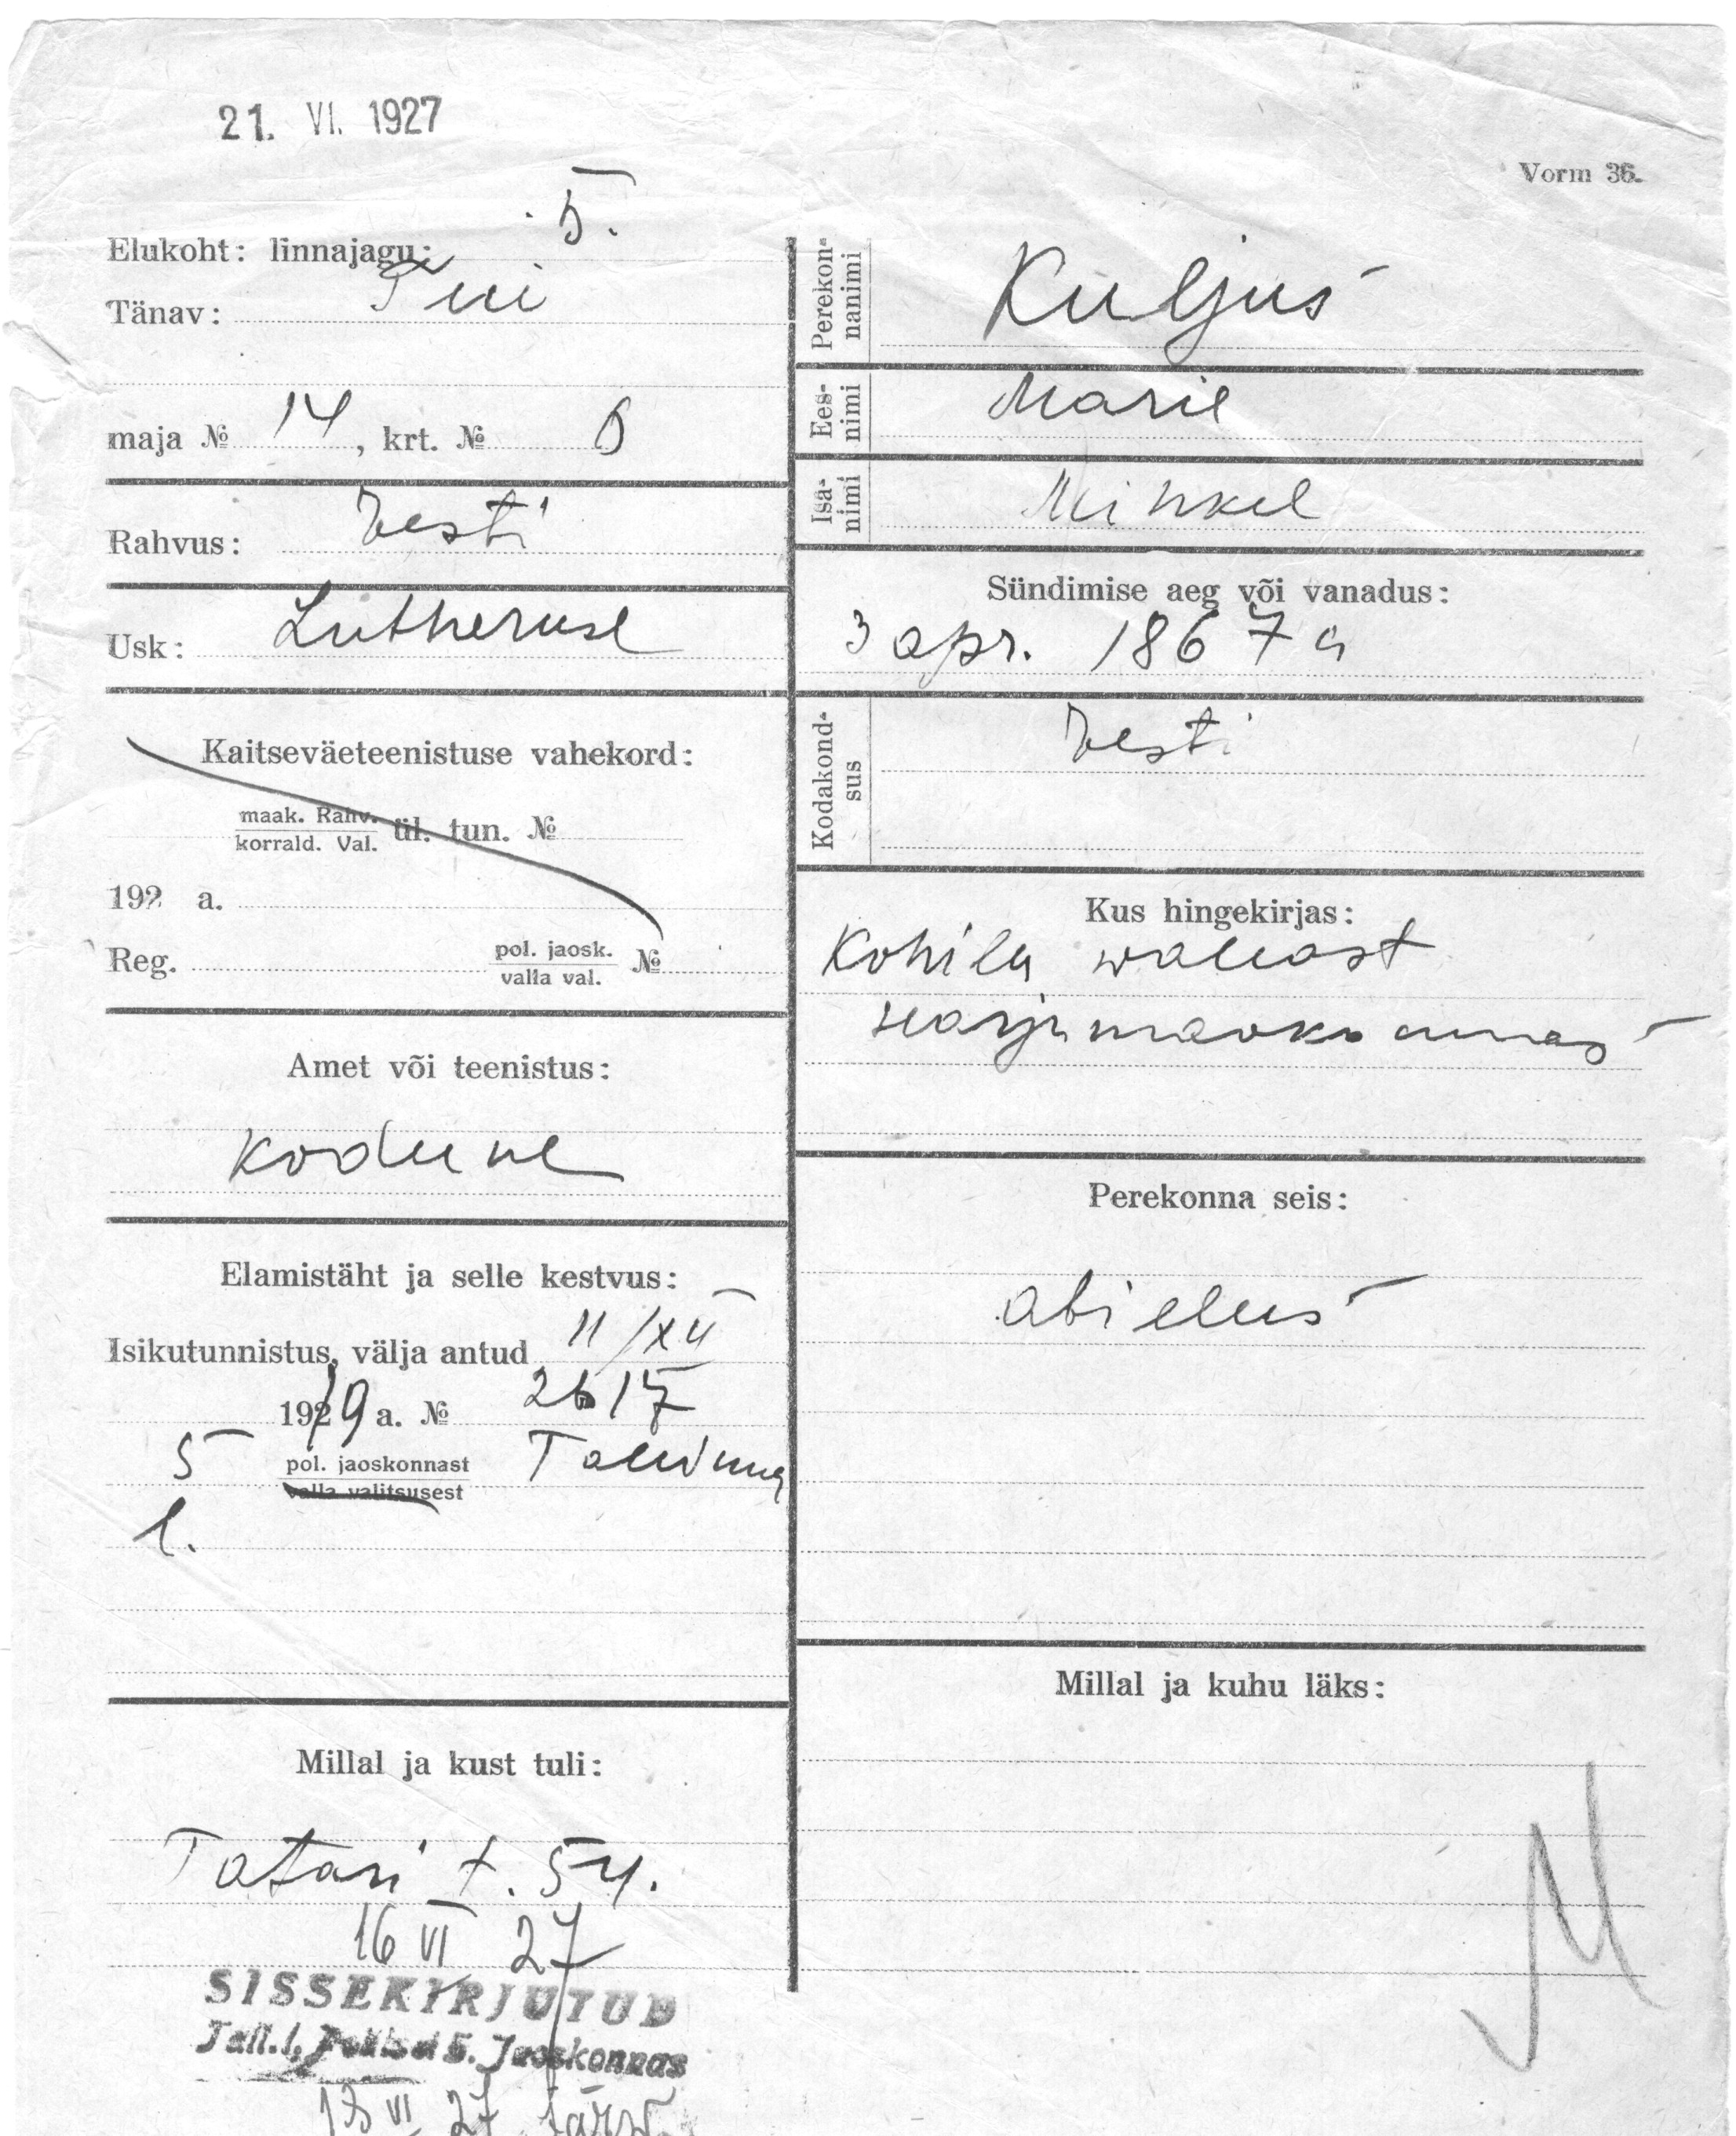 21. VI. 1927
Vorm 36.
Elukoht: linnajagu: 5.
Tänav: Pui
maja № 14, krt. № 6
Rahvus: Eesti
Usk: Lutheruse
Kaitseväeteenistuse vahekord:
maak. Rahv.
korrald. Val. ül. tun. №
192 a.
Reg. pol. jaosk. №
valla val.
Amet või teenistus:
Kodune
Elamistäht ja selle kestvus:
Isikutunnistus, välja antud 11/XII
1919 a. № 2617
5 pol. jaoskonnast Tallinna
valla valitsusest
l.
Millal ja kust tuli:
Tatari t. 54.
16 VI 27
SISSEKIRJUTUD
Tall. l. Politsei 5. Jaoskonnas
VI 27
Perekonnanimi
Kuljus
Eesnimi
Marie
Isanimi
Mihkel
Sündimise aeg või vanadus:
3 apr. 1867 a
Kodakondsus
Eesti
Kus hingekirjas:
Kohila wallast
Harjumaakonnas
Perekonna seis:
abielus
Millal ja kuhu läks: